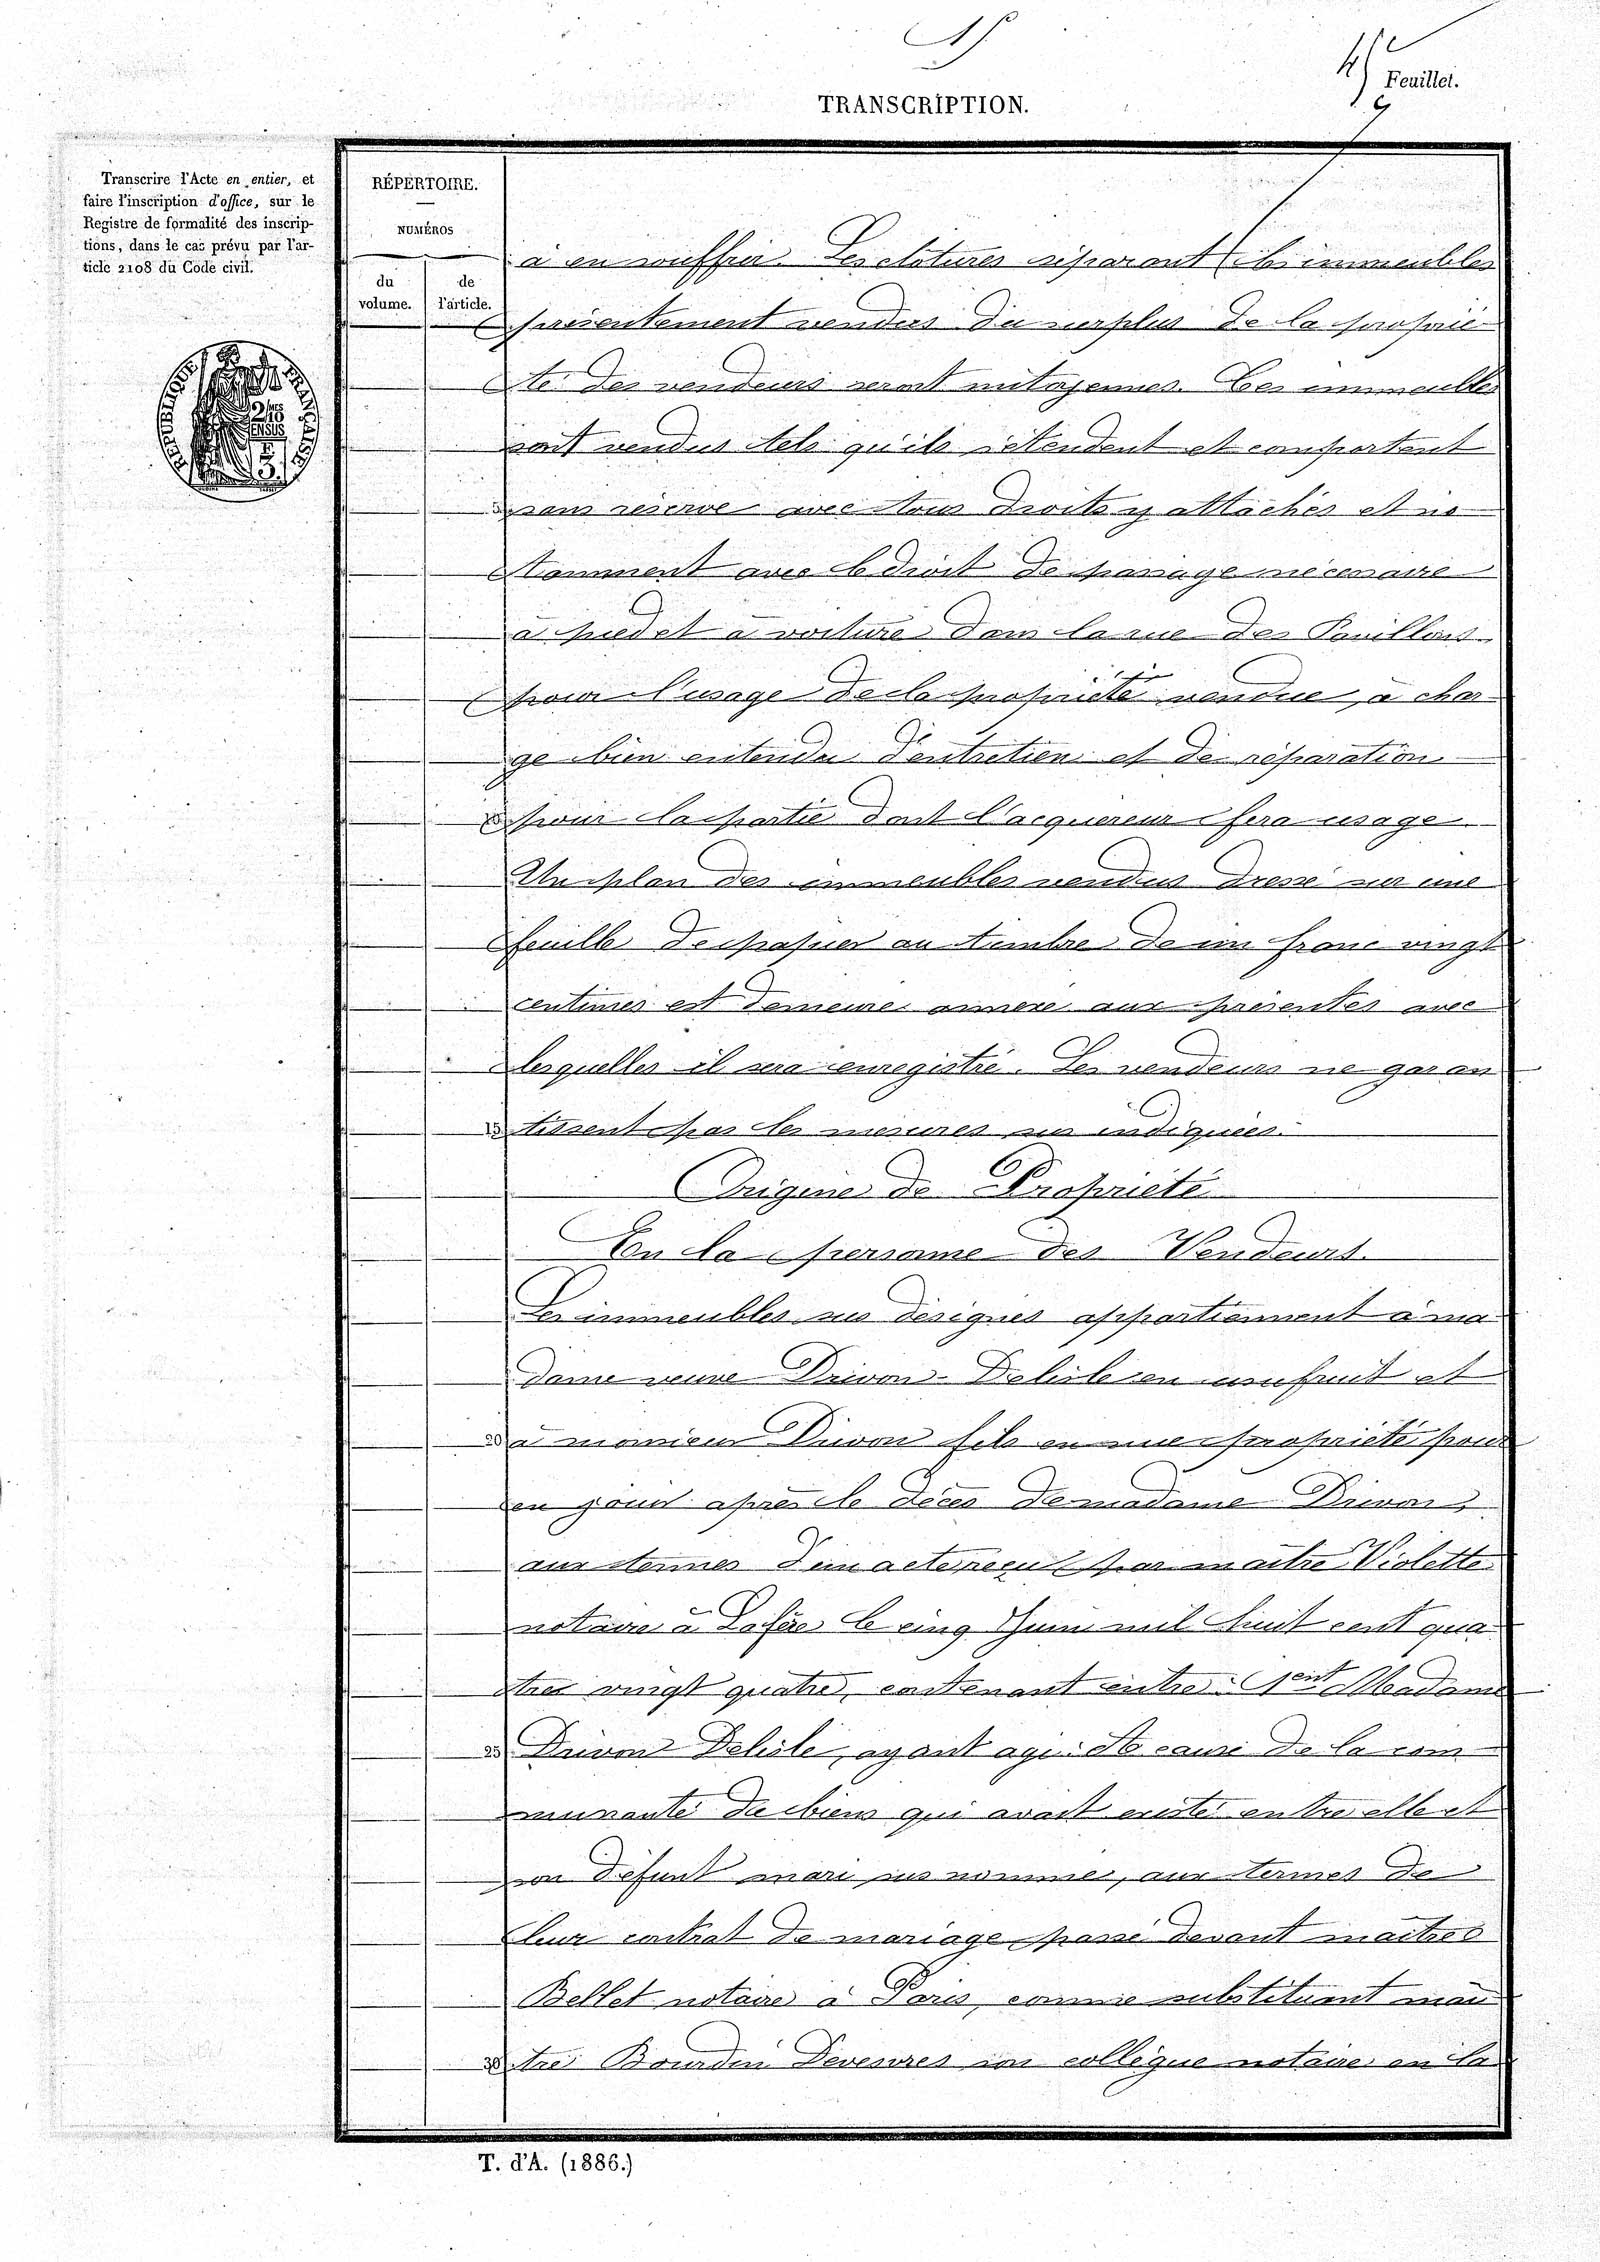 TRANSCRIPTION.
Feuillet.
Transcrire l'Acte en entier, et
faire l'inscription d'office, sur le
Registre de formalité des inscrip-
tions, dans le cas prévu par l'ar-
ticle 2108 du Code civil.
RÉPERTOIRE.
NUMÉROS
du
volume.
de
l'article.
RÉPUBLIQUE FRANÇAISE
à en souffrir. Les clôtures séparant les immeubles
présentement vendus du surplus de la proprié
té des vendeurs seront mitoyennes. Ces immeubles
sont vendus tels qu'ils s'étendent et comportent
sans réserve avec tous droits y attachés et no
tamment avec le droit de passage nécessaire
à pied et à voiture dans la rue des Pavillons
pour l'usage de la propriété vendue, à char
ge bien entendu d'entretien et de réparation
pour la partie dont l'acquéreur fera usage.
Un plan des immeubles vendus dressé sur une
feuille de papier au timbre de un franc vingt
centimes est demeuré annexé aux présentes avec
lesquelles il sera enregistré. Les vendeurs ne garan
15 tissent pas les mesures sus indiquées.
Origine de Propriété
En la personne des Vendeurs.
Les immeubles sus désignés appartiennent à ma
dame veuve Drivon-Delisle en usufruit et
20 à monsieur Drivon fils en nue propriété pour
en jouir après le décès de madame Drivon,
aux termes d'un acte reçu par maître Violette
notaire à Lafère le cinq Juin mil huit cent qua
tre vingt quatre, contenant entre : 1ent Madame
25 Drivon Delisle, ayant agi : A cause de la com
munauté de biens qui avait existé entre elle et
son défunt mari sus nommé, aux termes de
leur contrat de mariage passé devant maître
Bellet notaire à Paris, comme substituant maî
30 tre Bourdin Devesvres son collègue notaire en la
T. d'A. (1886.)